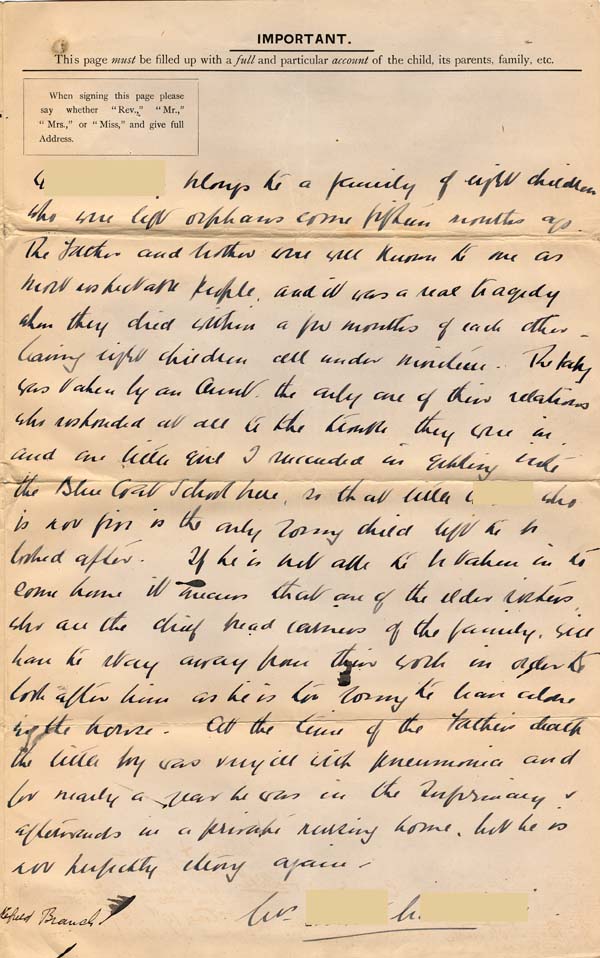 IMPORTANT.
This page must be filled up with a full and particular account of the child, its parents, family, etc.
When signing this page please
say whether "Rev.," "Mr.,"
"Mrs.," or "Miss," and give full
Address.
belongs to a family of eight children
who were left orphans some fifteen months ago.
The Father and Mother were well known to me as
most respectable people, and it was a real tragedy
when they died within a few months of each other -
leaving eight children all under nineteen. The baby
was taken by an Aunt, the only one of their relations
who responded at all to the trouble they were in,
and one little girl I succeeded in getting into
the Blue Coat School here, so that little who
is now five is the only young child left to be
looked after. If he is not able to be taken in to
some home it means that one of the elder sisters,
who are the chief bread earners of the family, will
have to stay away from their work in order to
look after him as he is too young to leave alone
in the house. At the time of the Father's death
the little boy was very ill with pneumonia and
for nearly a year he was in the Infirmary &
afterwards in a private nursing home, but he is
now perfectly strong again -
Branch